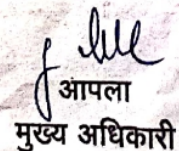 आपला
मुख्य अधिकारी